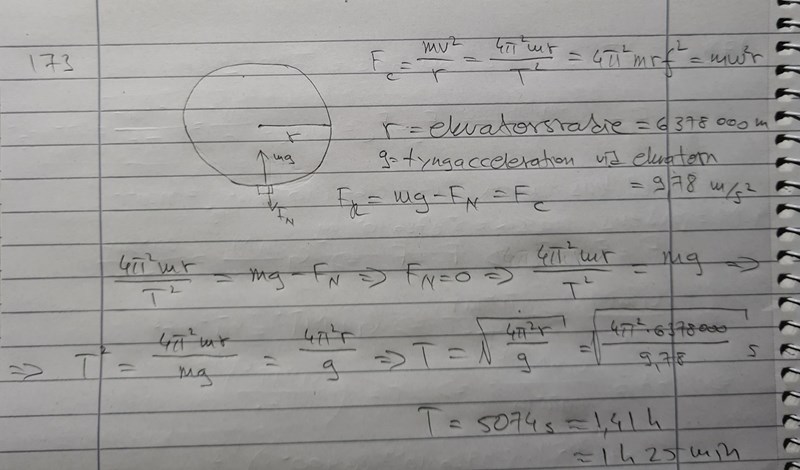 173
F_c = mv²/r = 4π²mr/T² = 4π²mrf² = mω²r
r
r = ekvatorsradie = 6378 000 m
g = tyngacceleration vid ekvatorn
= 9,78 m/s²
mg
F_N
F_R = mg - F_N = F_c
4π²mr/T² = mg - F_N ⇒ F_N = 0 ⇒ 4π²mr/T² = mg ⇒
⇒ T² = 4π²mr/mg = 4π²r/g ⇒ T = √(4π²r/g) = √(4π²·6378000/9,78) s
T = 5074 s = 1,41 h
= 1 h 25 min